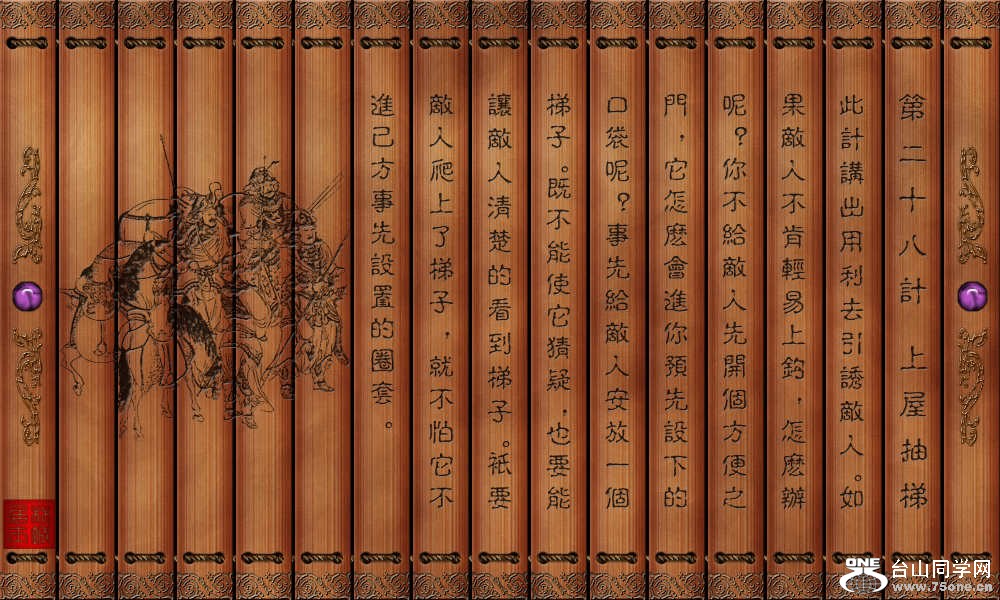 第二十八計 上屋抽梯
此計講出用利去引誘敵人。如
果敵人不肯輕易上鈎，怎麼辦
呢？你不給敵人先開個方便之
門，它怎麼會進你預先設下的
口袋呢？事先給敵人安放一個
梯子。既不能使它猜疑，也要能
讓敵人清楚的看到梯子。祇要
敵人爬上了梯子，就不怕它不
進己方事先設置的圈套。
ONE
台山同学网
www.75one.cn